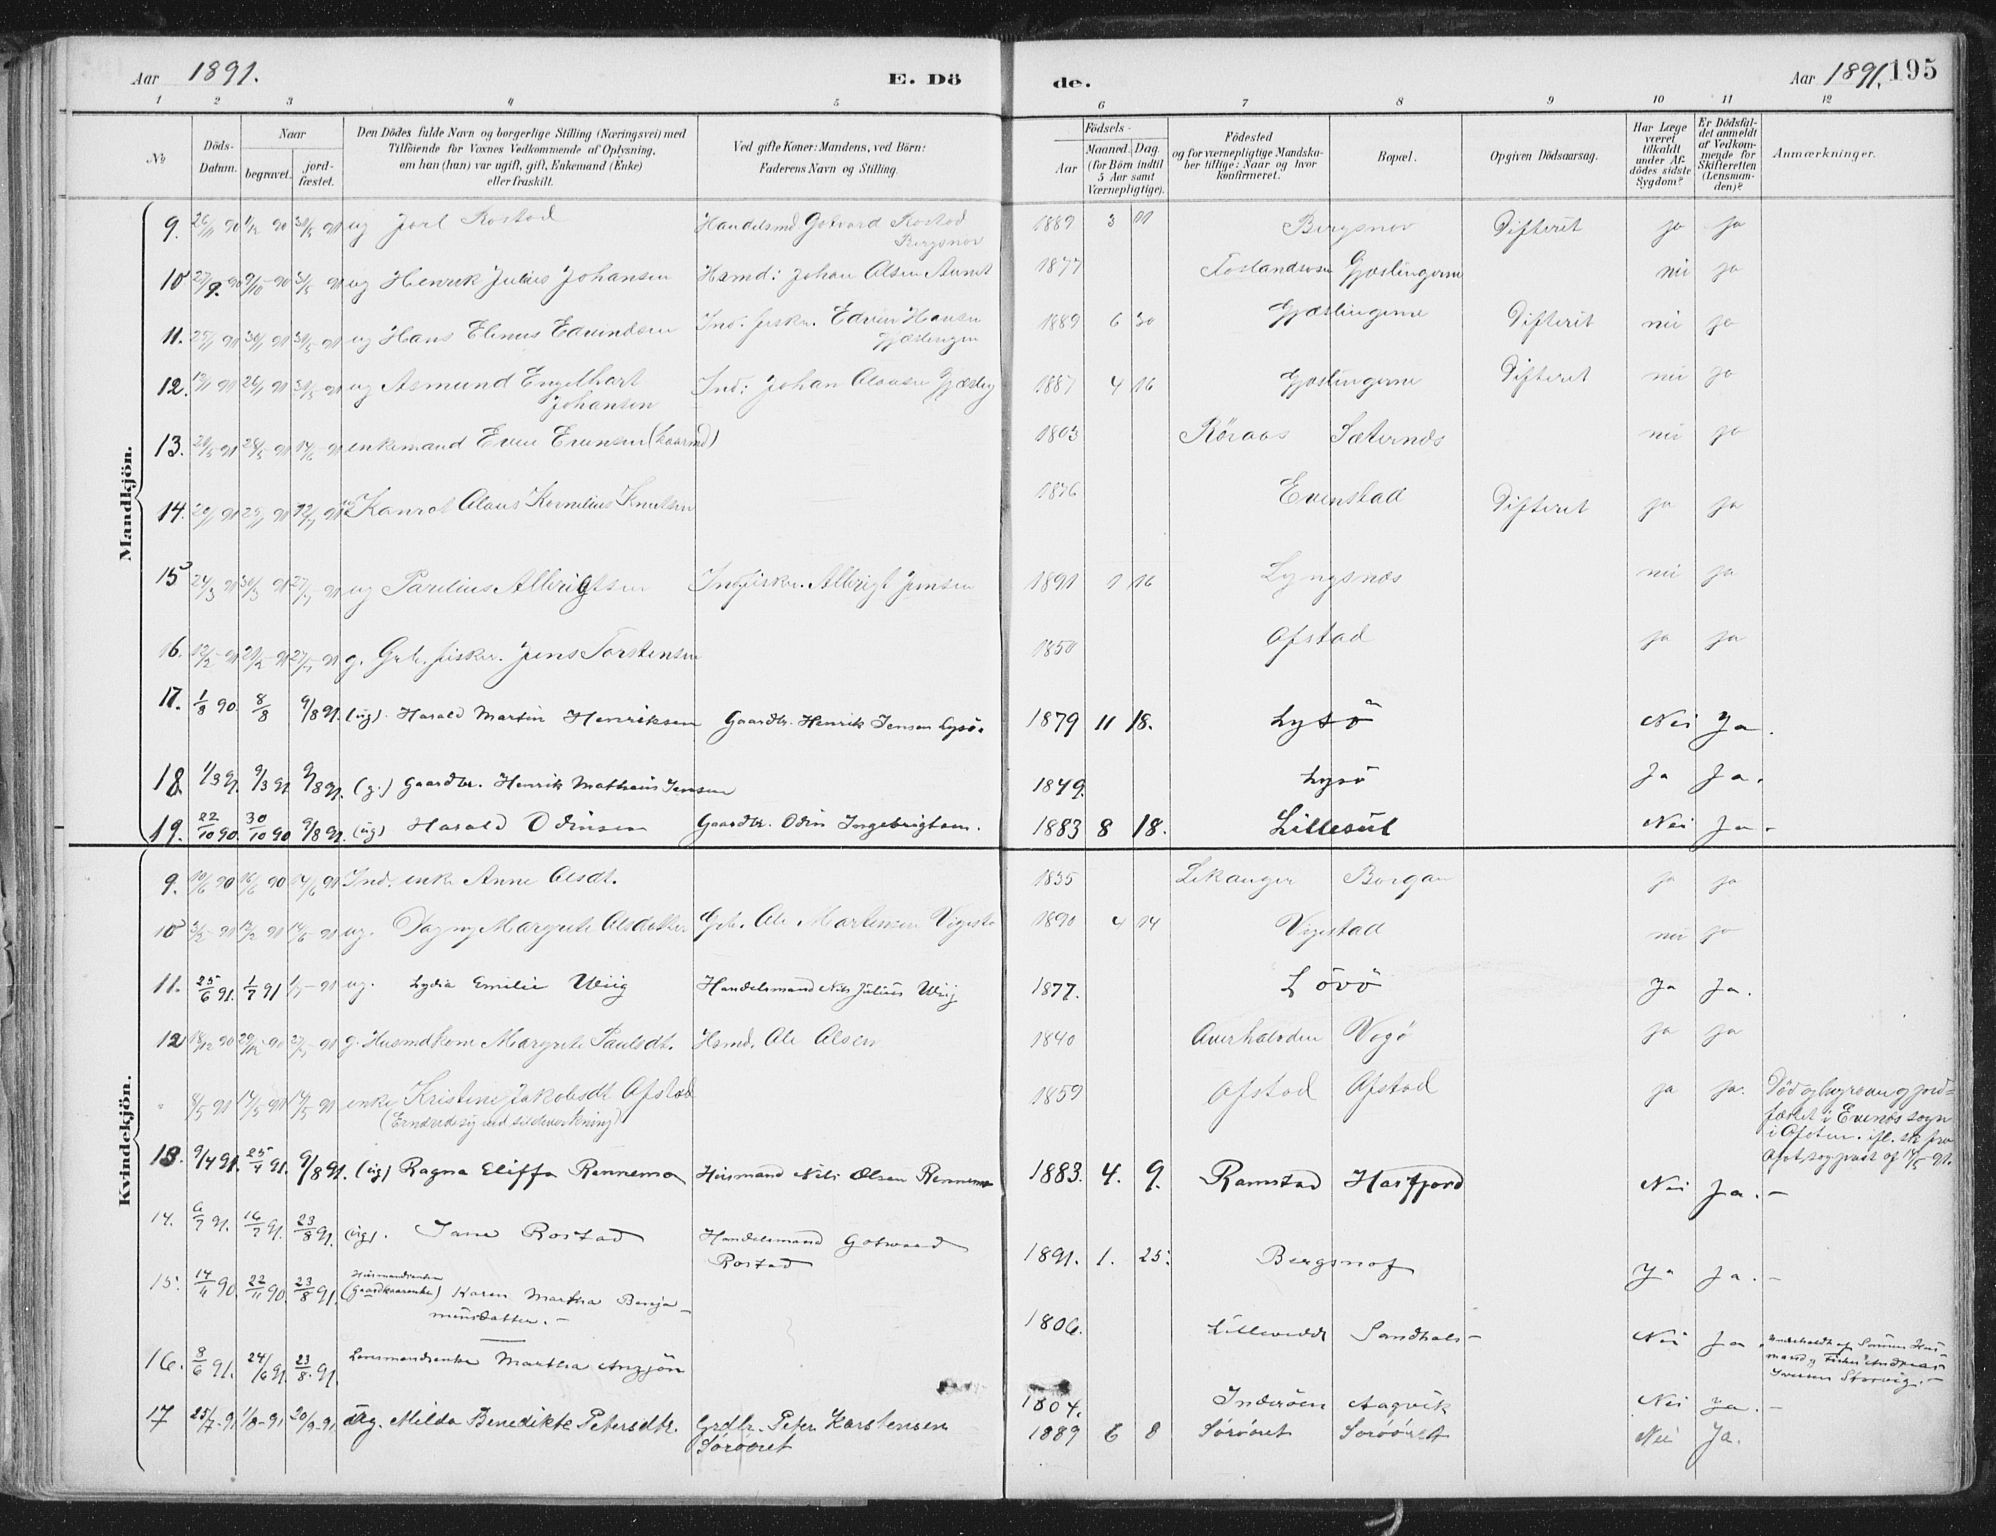 Aar 1891. E. Dö de. Aar 1891. 195
1 2 3 4 5 6 7 8 9 10 11 12
No
Döds-Datum.
Naar
begravet.
jord-fæstet.
Den Dödes fulde Navn og borgerlige Stilling (Næringsvei) med
Tilföiende for Voxnes Vedkommende af Oplysning,
om han (hun) var ugift, gift, Enkemand (Enke)
eller fraskilt.
Ved gifte Koner: Mandens, ved Börn:
Faderens Navn og Stilling.
Födsels-
Aar
Maaned. Dag.
(for Börn indtil
5 Aar samt
Værnepligtige).
Födested
og for værnepligtige Mandska-
ber tillige: Naar og hvor
konfirmeret.
Bopæl.
Opgiven Dödsaarsag.
Har Læge
været
tilkaldt
under Af-
dödes sidste
Sygdom?
Er Dödsfal-
det anmeldt
af Vedkom-
mende for
Skifteretten
(Lensman-
den)?
Anmærkninger.
Mandkjön.
9. 26/11 90 1/12 90 31/5 91 ug Joel Rostad Handelsmd Gotvard Rostad 1889 3 11 Bergsnov Difterit ja ja
Bergsnov
10 27/9 90 9/10 90 31/5 91 ug Henrik Julius Johansen Hsmd: Johan Olsen 1877 Gjæslingerne nei ja
11. 31/5 91 ug Hans Elinus Edvindsen Ind. fisker. Edvin Hansen 1889 6 30 Gjæslingerne Difterit nei ja
Gjæslingen
12. 31/5 91 ug Asmund Engelhart Ind: Johan Gjæsling 1887 4 16 Gjæslingerne Difterit nei ja
Johansen
13. 28/5 91 14/6 91 enkemand Even Evensen 1803 Röraas Sæternes nei ja
14. 12/7 91 Olaus Kornelius Knutsen 1876 Evenstad Difterit ja ja
15 24/3 91 30/3 91 27/7 91 ug Parelius Albrigtsen Ind fisker. Albrigt Jensen 1891 1 16 Lyngsnes nei ja
16. 27/7 91 g. Grb. fisker. Jens Torstensen 1850 Ofstad ja ja
17. 1/8 90. 8/8 9/8 91. (ug). Harald Martin Henriksen Gaardbr. Henrik Jensen Lysö. 1879 11 18. Lysö Nei Ja.
18 1/3 91. 9/3 91 9/8 91. (g.) Gaardbr. Henrik Matheus Jensen 1849. Lysö Ja Ja.
19. 22/10 90. 30/10 90 9/8 91. (ug) Harald Odinsen Gaardbr. Odin Ingebrigtsen. 1883 8 18. Lillesul Nei Ja.
Kvindekjön.
9. 10/6 90 16/6 90 14/6 91 Ind. enke Anne Olsdt. 1835 Lekanger Borgan ja ja
10 14/6 91 ug. Dagny Margrete Olsdatter Grb. Ole Martinsen 1890 4 14 Vigestad nei ja
11. 25/6 91. 1/7 91 ug. Lydia Emilie Wiig Handelsmand Nils Julius Wiig 1877. Lövö Ja Ja.
12 18/12 90 29/12 90 27/7 91 g. Husmdkone Margrete Paulsdt. Hsmd. Ole Olsen 1840 Overhalvden Vegö ja ja
" 8/5 91 14/5 91 14/5 91 enke Kristine Jakobsdt Ofstad 1859 Ofstad Ofstad ja ja. Död og begravn og jord-
(Ernærede sig ved sildevirkning) fæstet i Evenes sogn
i Ofoten. ifl. sk fra
Ofot. sogprest af 14/5 91.
13. 9/4 91. 25/4 91. 9/8 91. (ug) Ragna Eliffa Rennemo Husmand Nils Olsen Rennemo 1883. 4. 9. Ramstad Horfjord Nei Ja. —
14. 6/7 91. 16/7 91. 23/8 91. (ug). Jane Rostad Handelsmand Gotward 1891. 1. 25. Bergsnof Ja Ja. —
Rostad
15. 14/11 90. 22/11 90. 23/8 91. Husmandsenke
(Gaardkaarenke) Karen Martha Benja-
minsdatter. — 1806. Lillevedt Sandhals — Nei Ja Underholdt af Sönnen Hus-
mand og Fisker Andreas
Iversen Storvig. —
16. 8/6 91. 24/6 91. 23/8 91. Lensmandsenke Martha Anzjön 1804. Inderöen Aagvik Nei Ja. —
17 25/7-91 1/8-91 20/9-91 ug. Milda Benedikte Petersdtr. Grdbr. Peter Karstensen 1889 6 8 Söröäret Söröäret Nei Ja.
Söröäret